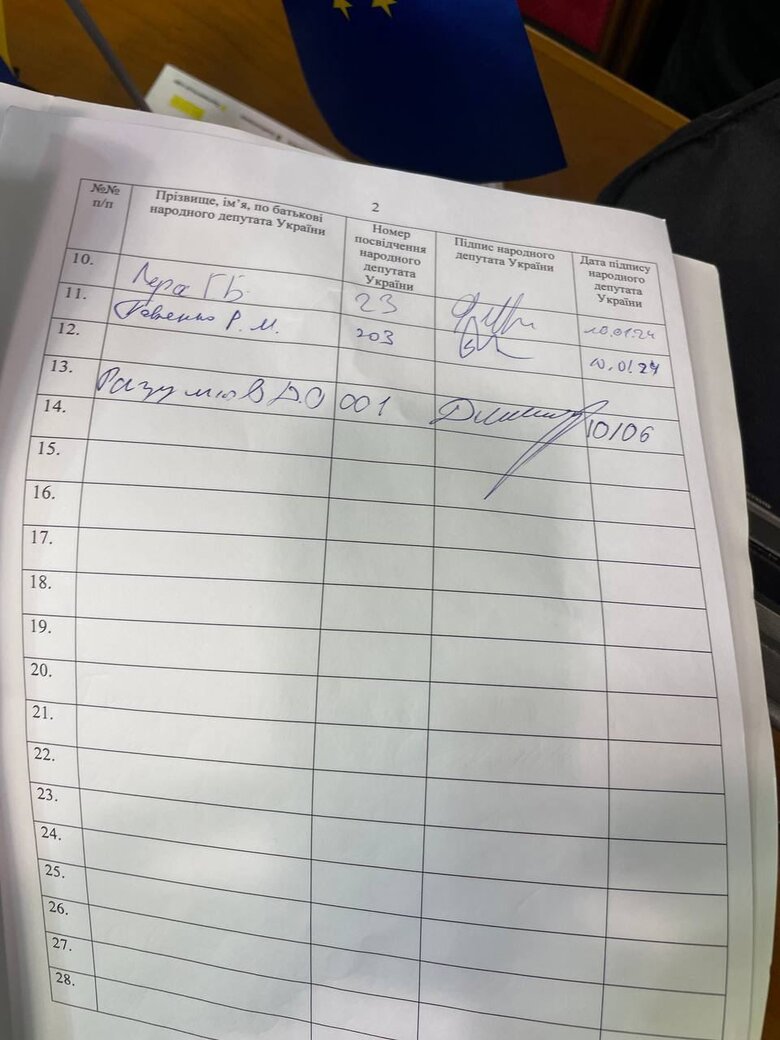 2
№№ п/п
Прізвище, ім’я, по батькові народного депутата України
Номер посвідчення народного депутата України
Підпис народного депутата України
Дата підпису народного депутата України
10. Лера Г Б. 23 10.01.24
11. Р. М. 203 10.01.24
12.
13. Разумков Д.О 001 10/06
14.
15.
16.
17.
18.
19.
20.
21.
22.
23.
24.
25.
26.
27.
28.